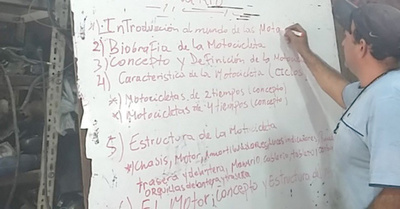 1). Introducción al mundo de las Mota
2) Biografia de la Motocicleta
3) Concepto y Definición de la Motoci
4) Caracteristica de la Motocicleta (CICLOS
*) Motocicletas de 2 tiempos (concepto)
*) Motocicletas de 4 tiempos (concepto)
5) Estructura de la Motocicleta
*) Chasis, Motor, Amortiguadores,
trasera y delantera, Manubrio
6) El Motor; concepto y Estructura